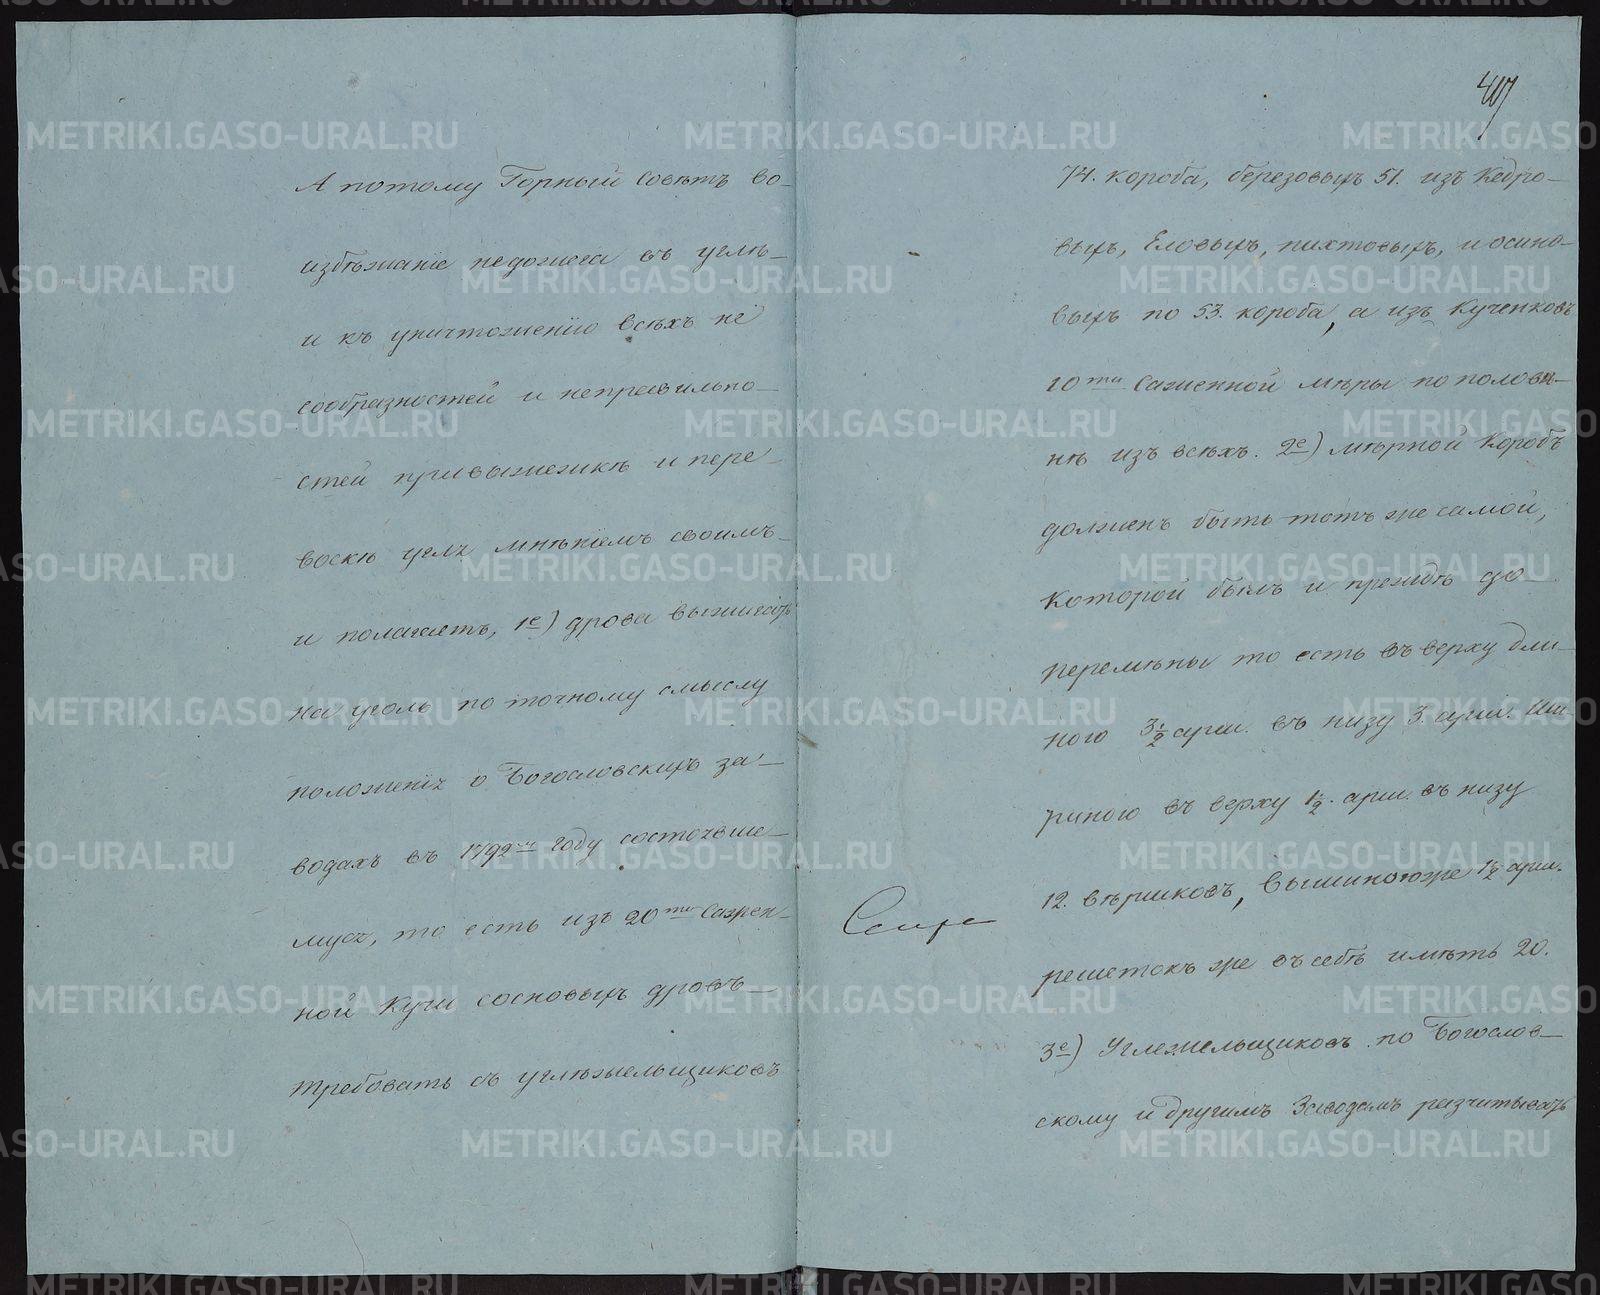 А потому Горный Совѣтъ во-
избѣжаніе недожега въ углѣ-
и къ уничтоженію всѣхъ не
сообразностей и неправильно-
стей привыжежкѣ и пере-
воскѣ угля мнѣніемъ своимъ-
и полагаетъ, 1е) дрова выжигать
на уголь по точному смыслу
положенія о Богословскихъ за-
водахъ въ 1792мъ году состоявше-
муся, то есть изъ 20ти сажен-
ной Кучи сосновыхъ дровъ-
требовать съ углѣжельщиковъ
407
74. короба, березовыхъ 51. изъ Кедро-
выхъ, Еловыхъ, пихтовыхъ, и осино-
выхъ по 53. короба, а изъ Кученковъ
10ти Саженной мѣры по полови-
нѣ изъ всѣхъ. 2е) мѣрной Коробъ
долженъ быть тотъ же самой,
Которой былъ и прежде до-
перемѣны то есть въ верху дли-
ною 3½ арш. въ низу 3. арш. Ши-
риною въ верху 1½. арш. въ низу
12. вѣршковъ, Вышиноюже 1½ арш.
решетокъ же въ себѣ имѣть 20.
3е) Углежельщиковъ по Богослов-
скому и другимъ Заводамъ разчитывать
METRIKI.GASO-URAL.RU